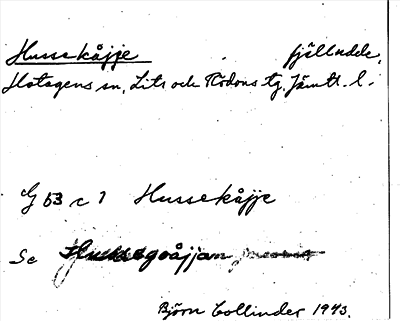 Hussekåjje fjälludde,
Hotagens sn, Lits och Rödöns tg, Jämtl. l.
G 53 c 1 Hussekåjje
Se Hussegoåjjan
Björn Collinder 1943.